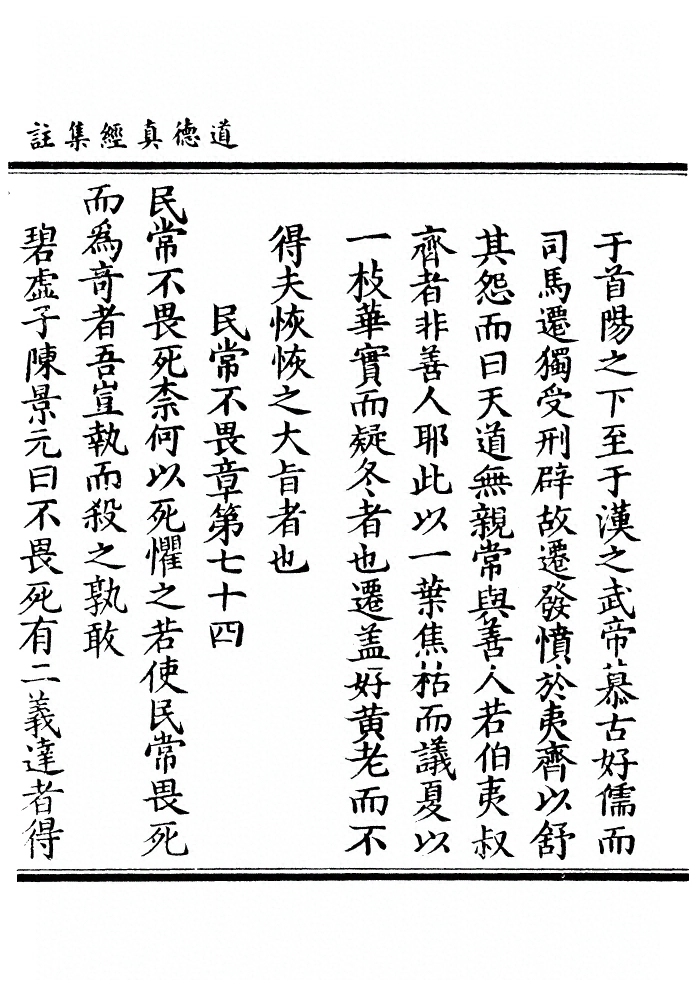 道德真經集註
于首陽之下至于漢之武帝慕古好儒而
司馬遷獨受刑辟故遷發憤於夷齊以舒
其怨而曰天道無親常與善人若伯夷叔
齊者非善人耶此以一葉焦枯而議夏以
一枝華實而疑冬者也遷盖好黄老而不
得夫恢恢之大旨者也
民常不畏章第七十四
民常不畏死柰何以死懼之若使民常畏死
而爲竒者吾豈執而殺之孰敢
碧虛子陳景元曰不畏死有二義達者得